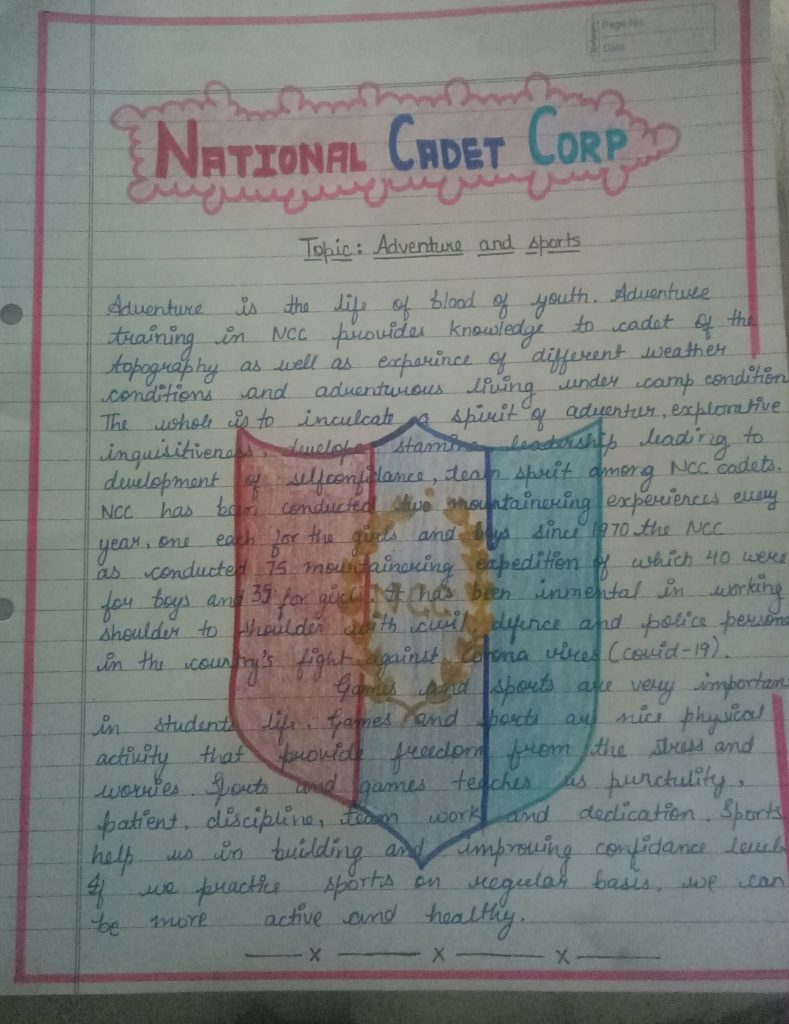 Page No.
Date
NATIONAL CADET CORP
Topic: Adventure and sports
Adventure is the life of blood of youth. Adventure
training in NCC provides knowledge to cadet of the
topography as well as experince of different weather
conditions and adventurous living under camp condition
The whole is to inculcate a spirit of adventur, explorative
inquisitiveness, develope stamina leadership leading to
development of selfconfidance, team sprit among NCC cadets.
NCC has been conducted two mountainering experiences every
year, one each for the girls and boys since 1970 the NCC
as conducted 75 mountainering expedition of which 40 were
for boys and 35 for girls It has been inmental in working
shoulder to shoulder with civil, defence and police persons
in the country's fight against corona vires (covid-19).
Games and sports are very importan
in students life. Games and sports are nice physical
activity that provide freedom from the stress and
worries. Sports and games teaches us punctulity,
patient, discipline, team work and dedication. Sports
help us in building and improving confidance level
If we practice sports on regular basis, we can
be more active and healthy.
x x x
NCC